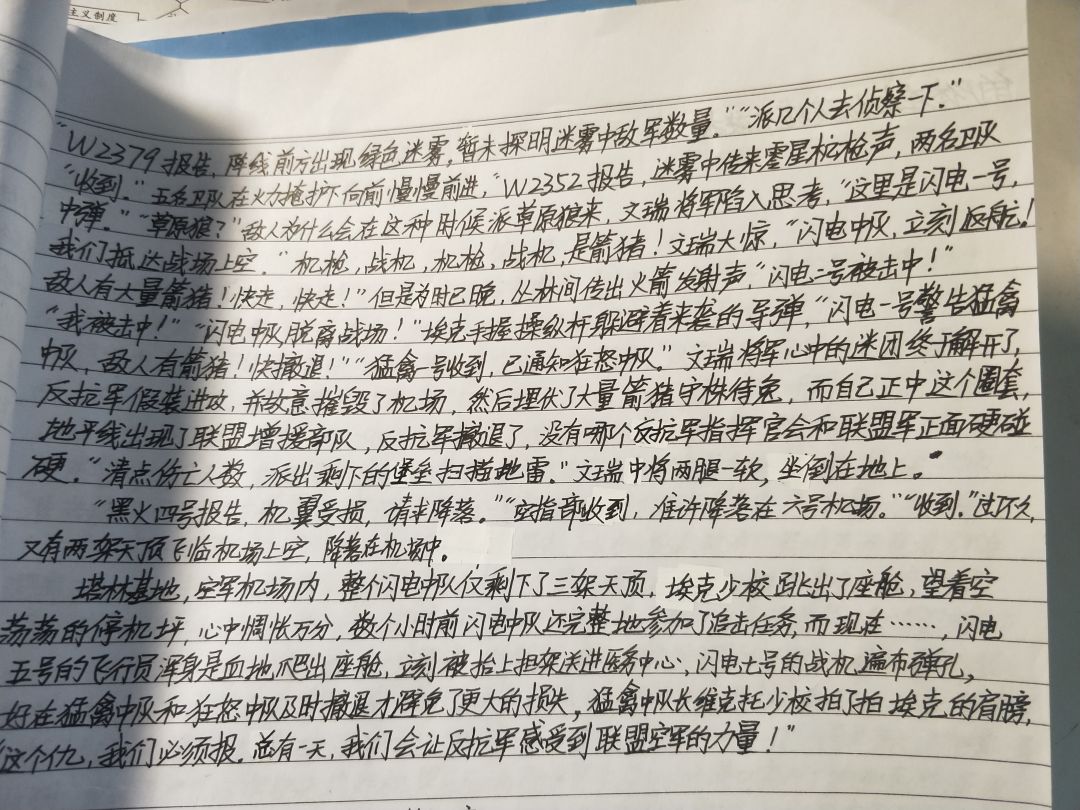 主义制度
“W2379报告，阵线前方出现绿色迷雾，暂未探明迷雾中敌军数量。”“派几个人去侦察一下。”
“收到。”五名卫队在火力掩护下向前慢慢前进，“W2352报告，迷雾中传来零星机枪声，两名卫队
中弹。”“草原狼？”敌人为什么会在这种时候派草原狼来，文瑞将军陷入思考，“这里是闪电一号，
我们抵达战场上空。”机枪，战机，机枪，战机，是箭猪！文瑞大惊，“闪电中队，立刻返航！
敌人有大量箭猪！快走，快走！”但是为时已晚，丛林间传出火箭发射声“闪电二号被击中！”
“我被击中！”“闪电中队脱离战场！”埃克手握操纵杆躲避着来袭的导弹，“闪电一号警告猛禽
中队，敌人有箭猪！快撤退！”“猛禽一号收到，已通知狂怒中队。”文瑞将军心中的迷团终于解开了，
反抗军假装进攻，并故意摧毁了机场，然后埋伏了大量箭猪守株待兔，而自己正中这个圈套，
地平线出现了联盟增援部队，反抗军撤退了，没有哪个反抗军指挥官会和联盟军正面硬碰
硬。“清点伤亡人数，派出剩下的堡垒扫描地雷。”文瑞中将两腿一软，坐倒在地上。
“黑火四号报告，机翼受损，请求降落。”“空指部收到，准许降落在六号机场。”“收到。”过不久，
又有两架天顶飞临机场上空，降落在机场中。
塔林基地，空军机场内，整个闪电中队仅剩下了三架天顶，埃克少校跳出了座舱，望着空
荡荡的停机坪，心中惆怅万分，数个小时前闪电中队还完整地参加了追击任务，而现在……，闪电
五号的飞行员浑身是血地爬出座舱，立刻被抬上担架送进医务中心，闪电七号的战机遍布弹孔，
好在猛禽中队和狂怒中队及时撤退才避免了更大的损失，猛禽中队长维克托少校拍了拍埃克的肩膀，
“这个仇，我们必须报。总有一天，我们会让反抗军感受到联盟空军的力量！”